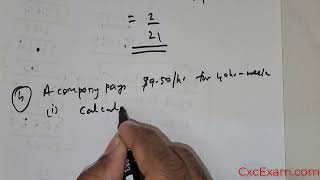 = 2/21
(b) A company pays $9.50/hr for 40hr-week
(i) Calcul
CxcExam.com